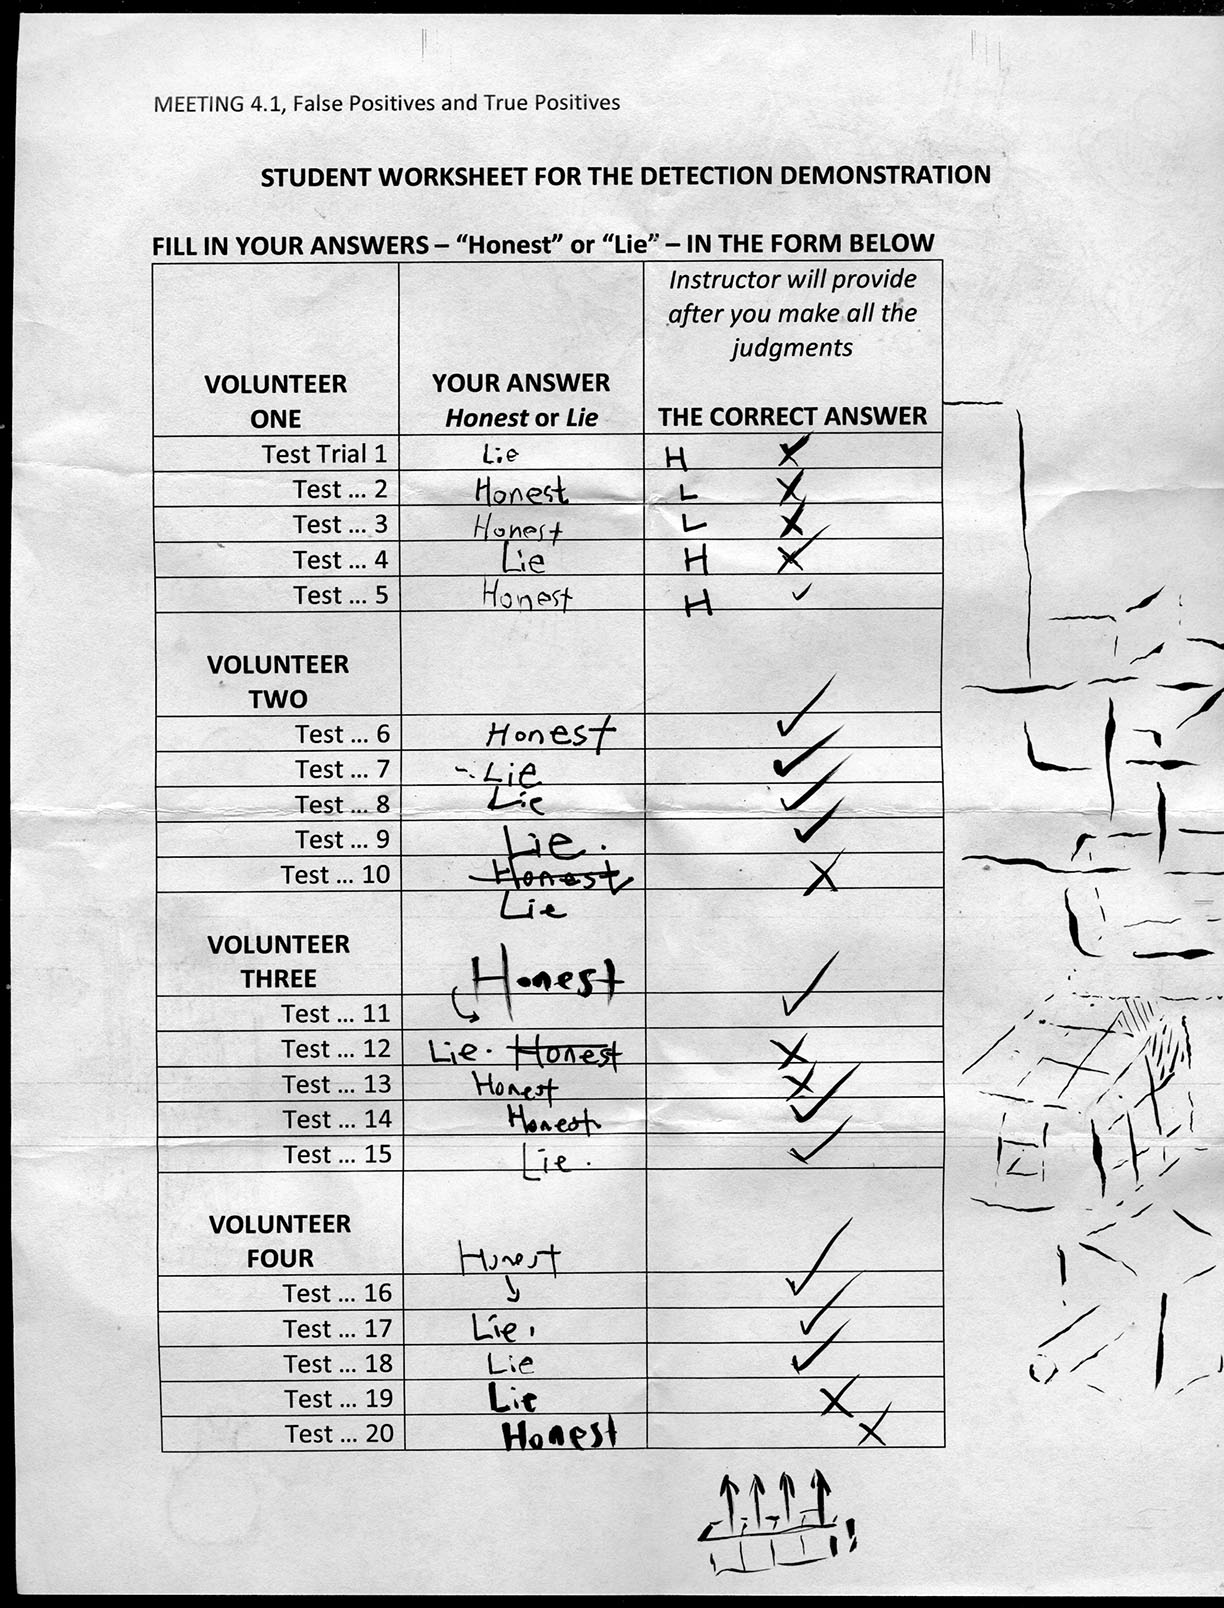 MEETING 4.1, False Positives and True Positives
STUDENT WORKSHEET FOR THE DETECTION DEMONSTRATION
FILL IN YOUR ANSWERS – “Honest” or “Lie” – IN THE FORM BELOW
Instructor will provide
after you make all the
judgments
VOLUNTEER YOUR ANSWER
ONE Honest or Lie THE CORRECT ANSWER
Test Trial 1 Lie H ✗
Test ... 2 Honest L ✗
Test ... 3 Honest L ✗
Test ... 4 Lie H ✗
Test ... 5 Honest H ✓
VOLUNTEER
TWO
Test ... 6 Honest ✓
Test ... 7 Lie ✓
Test ... 8 Lie ✓
Test ... 9 Lie. ✓
Test ... 10 Honest ✗
Lie
VOLUNTEER
THREE Honest
Test ... 11 ✓
Test ... 12 Lie. Honest ✗
Test ... 13 Honest ✗
Test ... 14 Honest ✓
Test ... 15 Lie. ✓
VOLUNTEER
FOUR Honest
Test ... 16 ✓
Test ... 17 Lie. ✓
Test ... 18 Lie ✓
Test ... 19 Lie ✗
Test ... 20 Honest ✗